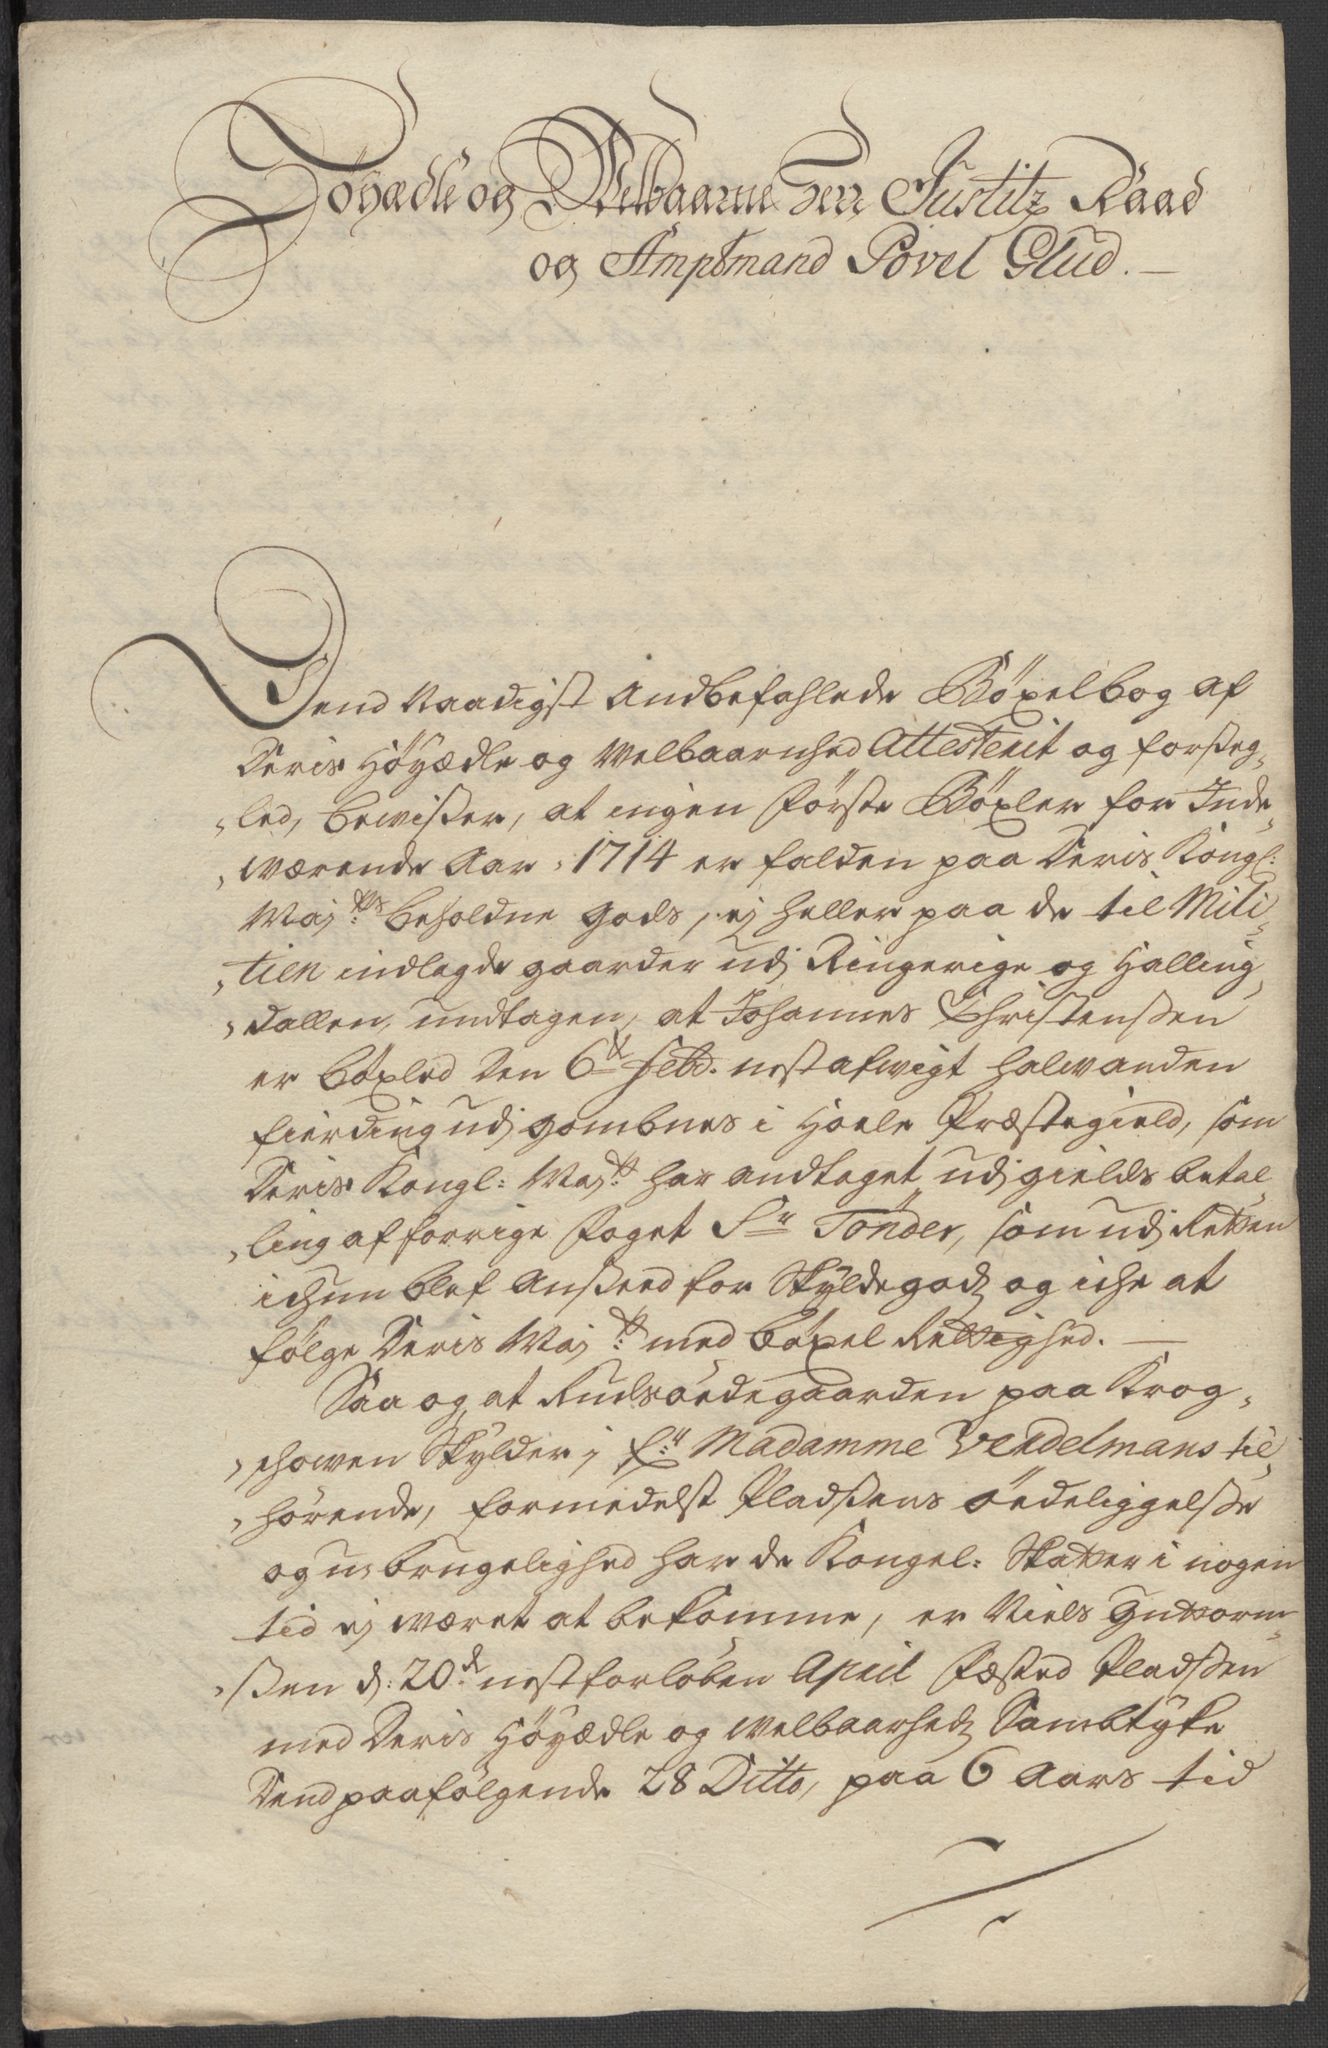 Höyædle og Welbaarne Herr Justitz Raad
og Amptmand Povel Glud.
Dend Naadigst Andbefahlede Böxelbog af
Deris Höyædle og Welbaarnhed Attesterit og forseg-
led, bewisser, at ingen Förste Böxler for Inde-
wærende Aar 1714 er falden paa Deris Kongl:
Maj:ts beholdne gods, ej heller paa de til Mili-
tien indlagde gaarder udj Ringerige og Halling-
dallen, undtagen, at Johannes Christenssen
er böxled den 6te Febr. nest afwigt halvanden
fierding udj Gombnes i Hoele Præstegield, som
Deris Kongl: Maj:tt har andtaget udj gields betal-
ling af forrige Foget Sr Tönder, som udj Retten
ichun blef Ansseed for Skyldegodz og iche at
fölge Deris Maj:tt med böxel Rettighed.
Saa og, at Rudsödegaarden paa Krog-
schowen Skylder j Madamme Vendelmans til-
hörende, formedelst Pladssens ödeliggelsse
og u-brugelighed har de Kongel: Skatter i nogen
tid ej wæret at bekomme, er Niels Guttorm-
ssen d: 20de nest forlöben April Fæsted Pladssen
med Deris Höyædle og welbaarhedz Sambtyke
Dend paafölgende 28 Ditto, paa 6 Aars tid